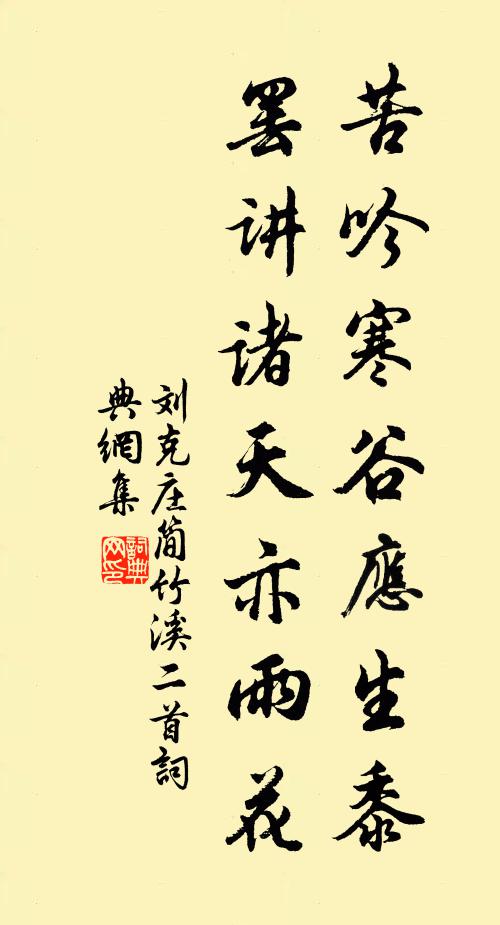 苦吟寒谷應生黍
罢讲诸天亦雨花
刘克庄简竹溪二首詞
典網集
詞典网印